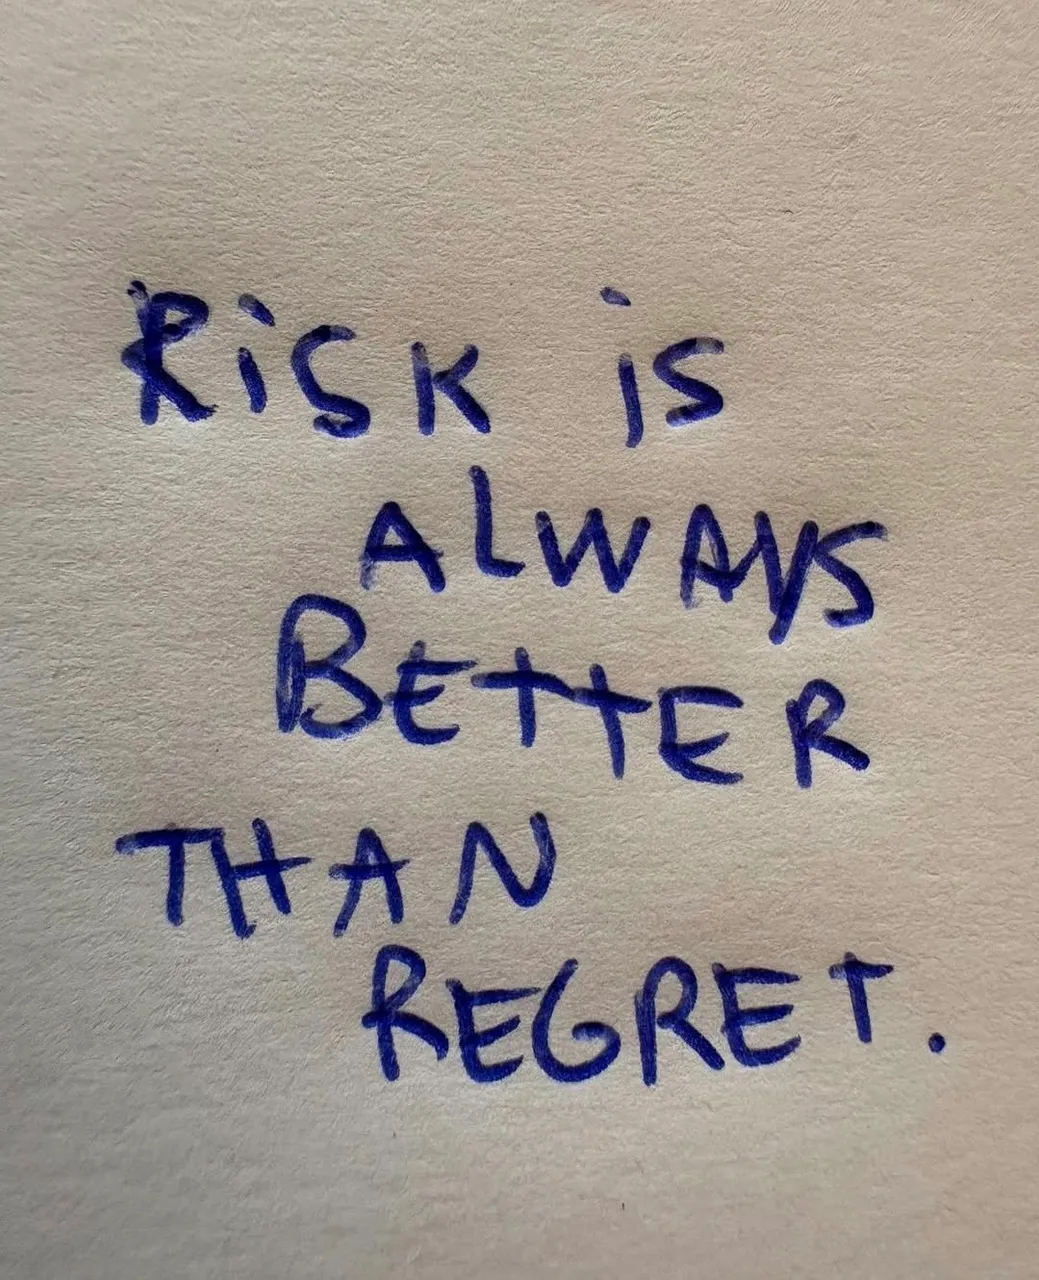 RiSK iS
ALWAYS
BETTER
THAN
REGRET.